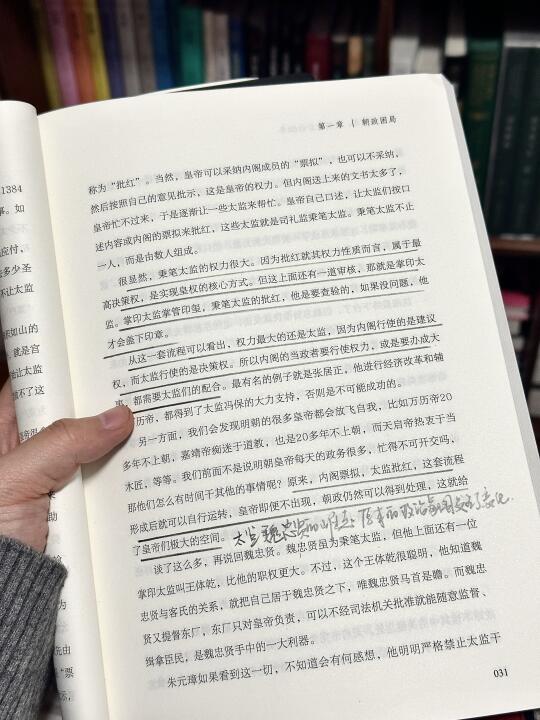 1384
事。如
应付，
多少圣
不让太监
天如山的
，就是宫
给太监
不了这
助
完由
“票
标，
第一章 | 朝政困局
称为“批红”。当然，皇帝可以采纳内阁成员的“票拟”，也可以不采纳，
然后按照自己的意见批示，这是皇帝的权力。但内阁送上来的文书太多了，
皇帝忙不过来，于是逐渐让一些太监来帮忙。皇帝自己口述，让太监们按口
述内容或内阁的票拟来批红，这些太监就是司礼监秉笔太监。秉笔太监不止
一人，而是由数人组成。
很显然，秉笔太监的权力很大。因为批红就其权力性质而言，属于最
高决策权，是实现皇权的核心方式。但这上面还有一道审核，那就是掌印太
监。掌印太监掌管印玺，秉笔太监的批红，他是要查验的，如果没问题，他
才会盖下印章。
从这一套流程可以看出，权力最大的还是太监，因为内阁行使的是建议
权，而太监行使的是决策权。所以内阁的当政者要行使权力，或是要办成大
事，都需要太监们的配合。最有名的例子就是张居正，他进行经济改革和辅
万历帝，都得到了太监冯保的大力支持，否则是不可能成功的。
另一方面，我们会发现明朝的很多皇帝都会放飞自我，比如万历帝20
多年不上朝，嘉靖帝痴迷于道教，也是20多年不上朝，而天启帝热衷于当
木匠，等等。我们前面不是说明朝皇帝每天的政务很多，忙得不可开交吗，
那他们怎么有时间干其他的事情呢？原来，内阁票拟，太监批红，这套流程
形成后就可以自行运转，皇帝即便不出现，朝政仍然可以得到处理，这就给
了皇帝们极大的空间。
太监魏忠贤的
谈了这么多，再说回魏忠贤。魏忠贤虽为秉笔太监，但他上面还有一位
掌印太监叫王体乾，比他的职权更大。不过，这个王体乾很聪明，他知道魏
忠贤与客氏的关系，就把自己居于魏忠贤之下，唯魏忠贤马首是瞻。而魏忠
贤又提督东厂，东厂只对皇帝负责，可以不经司法机关批准就能随意监督、
缉拿臣民，是魏忠贤手中的一大利器。
朱元璋如果看到这一切，不知道会有何感想，他明明严格禁止太监干
031